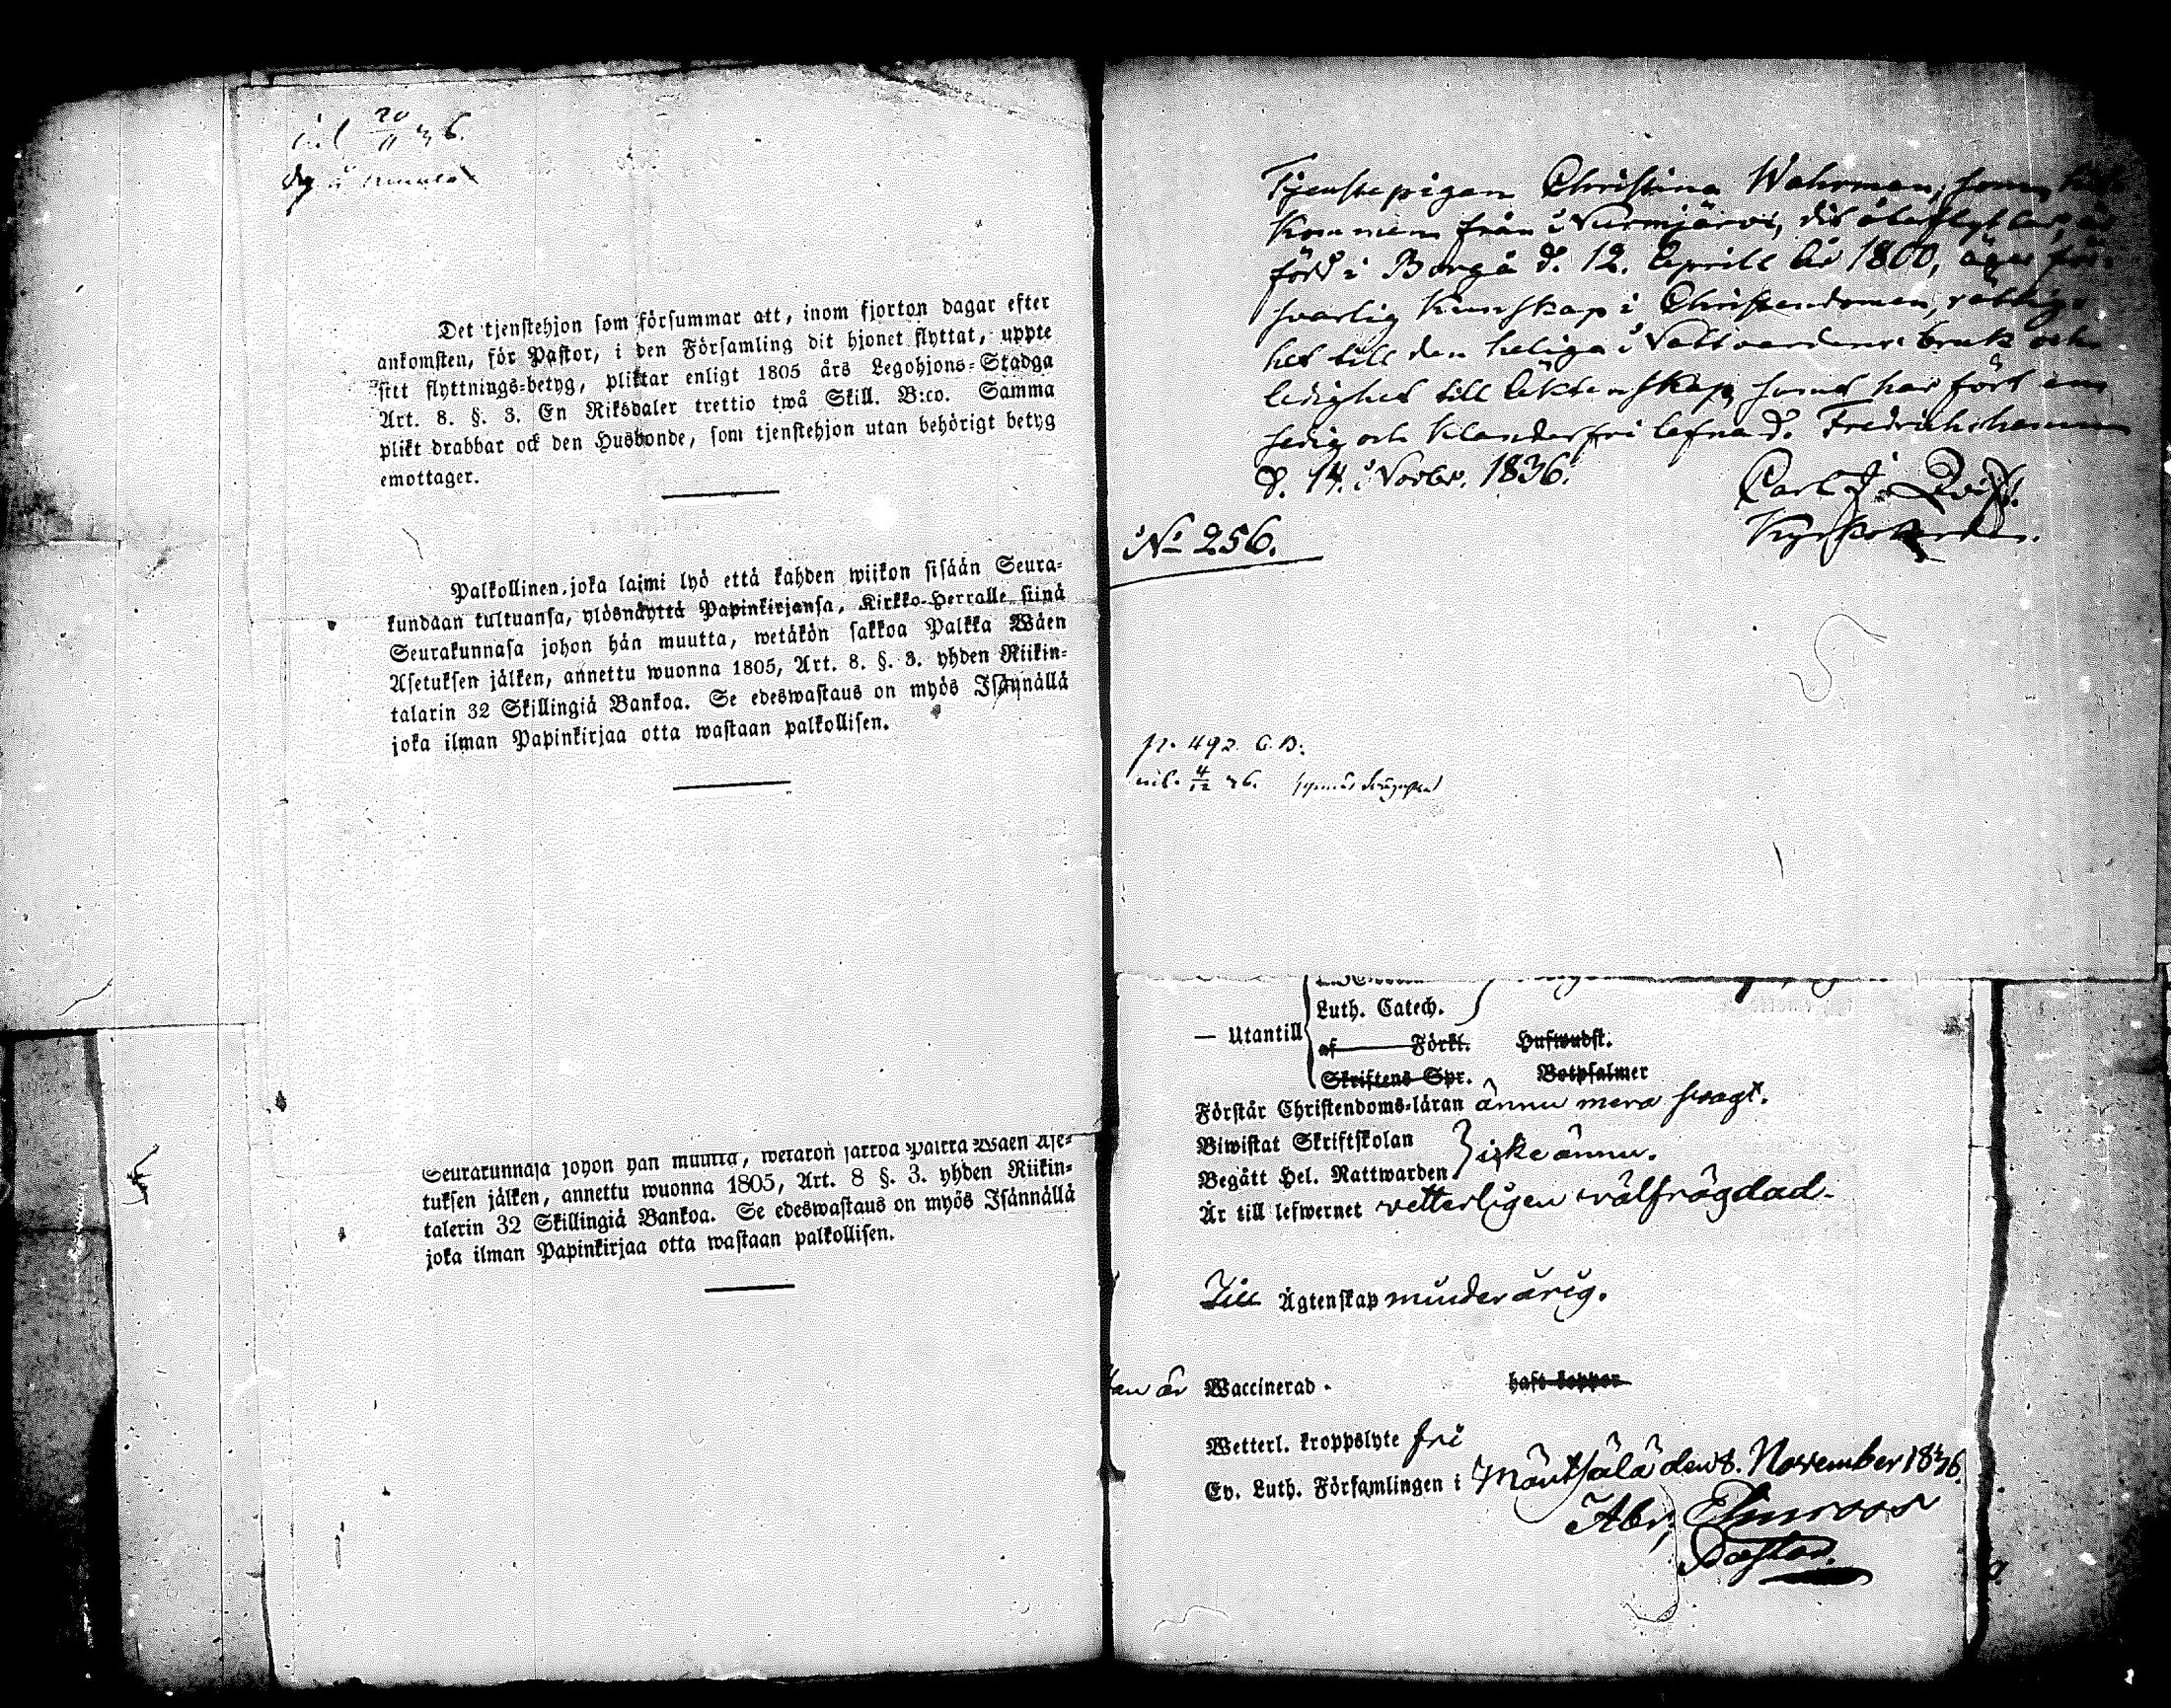 20/11 36.
Det tjenstehjon som försummar att, inom fjorton dagar efter
ankomsten, för Pastor, i den Församling dit hjonet flyttat, uppte
sitt flyttnings-betyg, pliktar enligt 1805 års Legohjons-Stadga
Art. 8. §. 3. En Riksdaler trettio twå Skill. B:co. Samma
plikt drabbar ock den Husbonde, som tjenstehjon utan behörigt betyg
emottager.
Palkollinen, joka laimi lyö että kahden wiikon sisään Seura-
kundaan tultuansa, ylösnäyttä Papinkirjansa, Kirkko-Herralle siinä
Seurakunnasa johon hän muutta, wetäkön sakkoa Palkka Wäen
Asetuksen jälken, annettu wuonna 1805, Art. 8. §. 3. yhden Riikin-
talarin 32 Skillingiä Bankoa. Se edeswastaus on myös Isännällä
joka ilman Papinkirjaa otta wastaan palkollisen.
Seurakunnasa johon hän muutta, wetäkön sakkoa Palkka Wäen Ase-
tuksen jälken, annettu wuonna 1805, Art. 8 §. 3. yhden Riikin-
talerin 32 Skillingiä Bankoa. Se edeswastaus on myös Isännällä
joka ilman Papinkirjaa otta wastaan palkollisen.
Tjenstepigan Christina Wahrman, som hit
kommen från Nurmijärvi, dit återflyttar, är
född i Borgå d. 12. April år 1800, äger för-
svarlig kunskap i Christendomen, rättig-
het till den heliga Nattvardens bruk och
ledighet till äktenskap, samt har fört en
sedig och klanderfri lefnad. Fredrichshamn
d. 14. Novbr. 1836.
Carl J. Qvist.
Kyrkoherde.
No 256.
p. 492. C. B.
4/12 36.
Luth. Catech.
— Utantill
af Förkl. Hufwudst.
Skriftens Spr. Botpsalmer
Förstår Christendoms-läran ännu mera svagt.
Biwistat Skriftskolan
Begått Hel. Nattwarden } icke ännu.
Är till lefwernet vetterligen välfrägdad.
Till Ägtenskap minderårig.
är Waccinerad. haft koppor
Wetterl. kroppslyte fri
Ev. Luth. Församlingen i Mäntsälä den 8. November 1836.
Abr. Elmroos
Pastor.